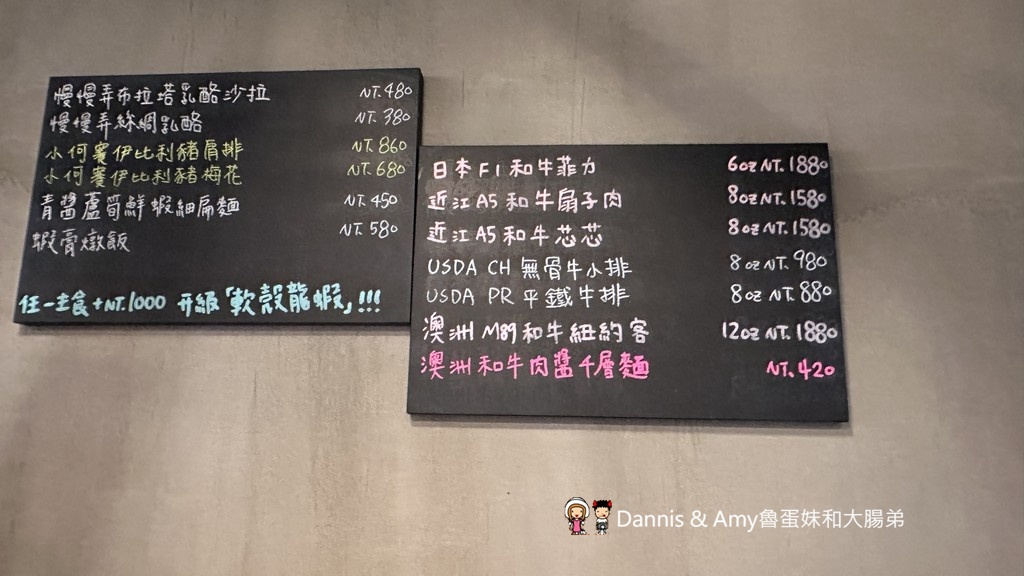 慢慢弄布拉塔乳酪沙拉 NT.480
慢慢弄絲綢乳酪 NT.380
小何賽伊比利豬肩排 NT.860
小何賽伊比利豬梅花 NT.680
青醬蘆筍鮮蝦細扁麵 NT.450
蝦膏燉飯 NT.580
任一主食+NT.1000 升級「軟殼龍蝦」!!!
日本F1和牛菲力 6oz NT.1880
近江A5和牛扇子肉 8oz NT.1580
近江A5和牛芯芯 8oz NT.1580
USDA CH 無骨牛小排 8oz NT.980
USDA PR 平鐵牛排 8oz NT.880
澳洲M89和牛紐約客 12oz NT.1880
澳洲和牛肉醬千層麵 NT.420
Dannis & Amy魯蛋妹和大腸弟